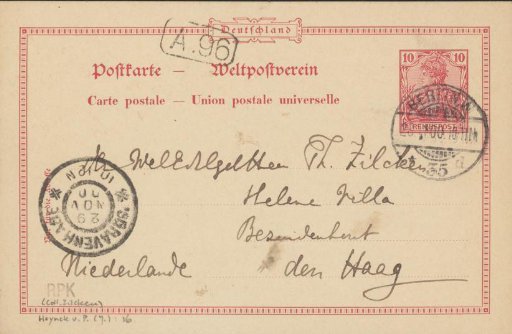 Deutschland
A.96
Postkarte — Weltpostverein
Carte postale — Union postale universelle
10 10
REICHSPOST
BERLIN W
35
'SGRAVENHAGE
29
NOV
00
Th. Zilcken
Helene Villa
Bezuidenhout
Niederlande den Haag
RPK
(Coll. Zilcken)